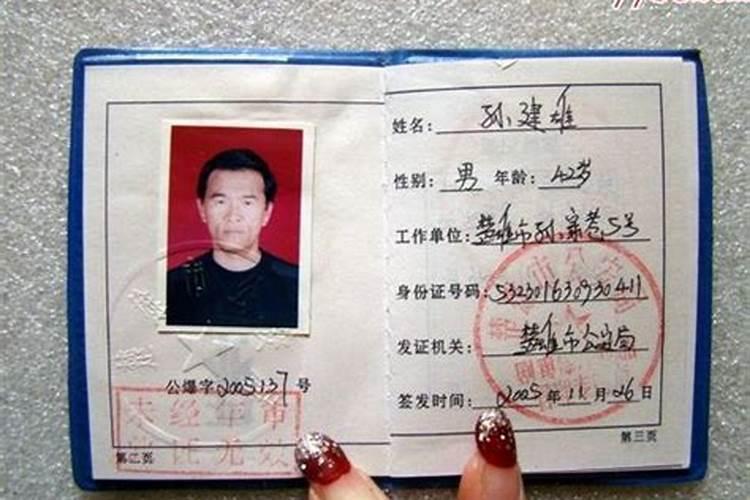 公爆字2005137号
未经年审
无效
第二页
姓名：孙建雄
性别：男 年龄：42岁
工作单位：楚雄市孙家巷5号
身份证号码：532301630930411
发证机关：楚雄市公安局
签发时间：2005年11月26日
第三页